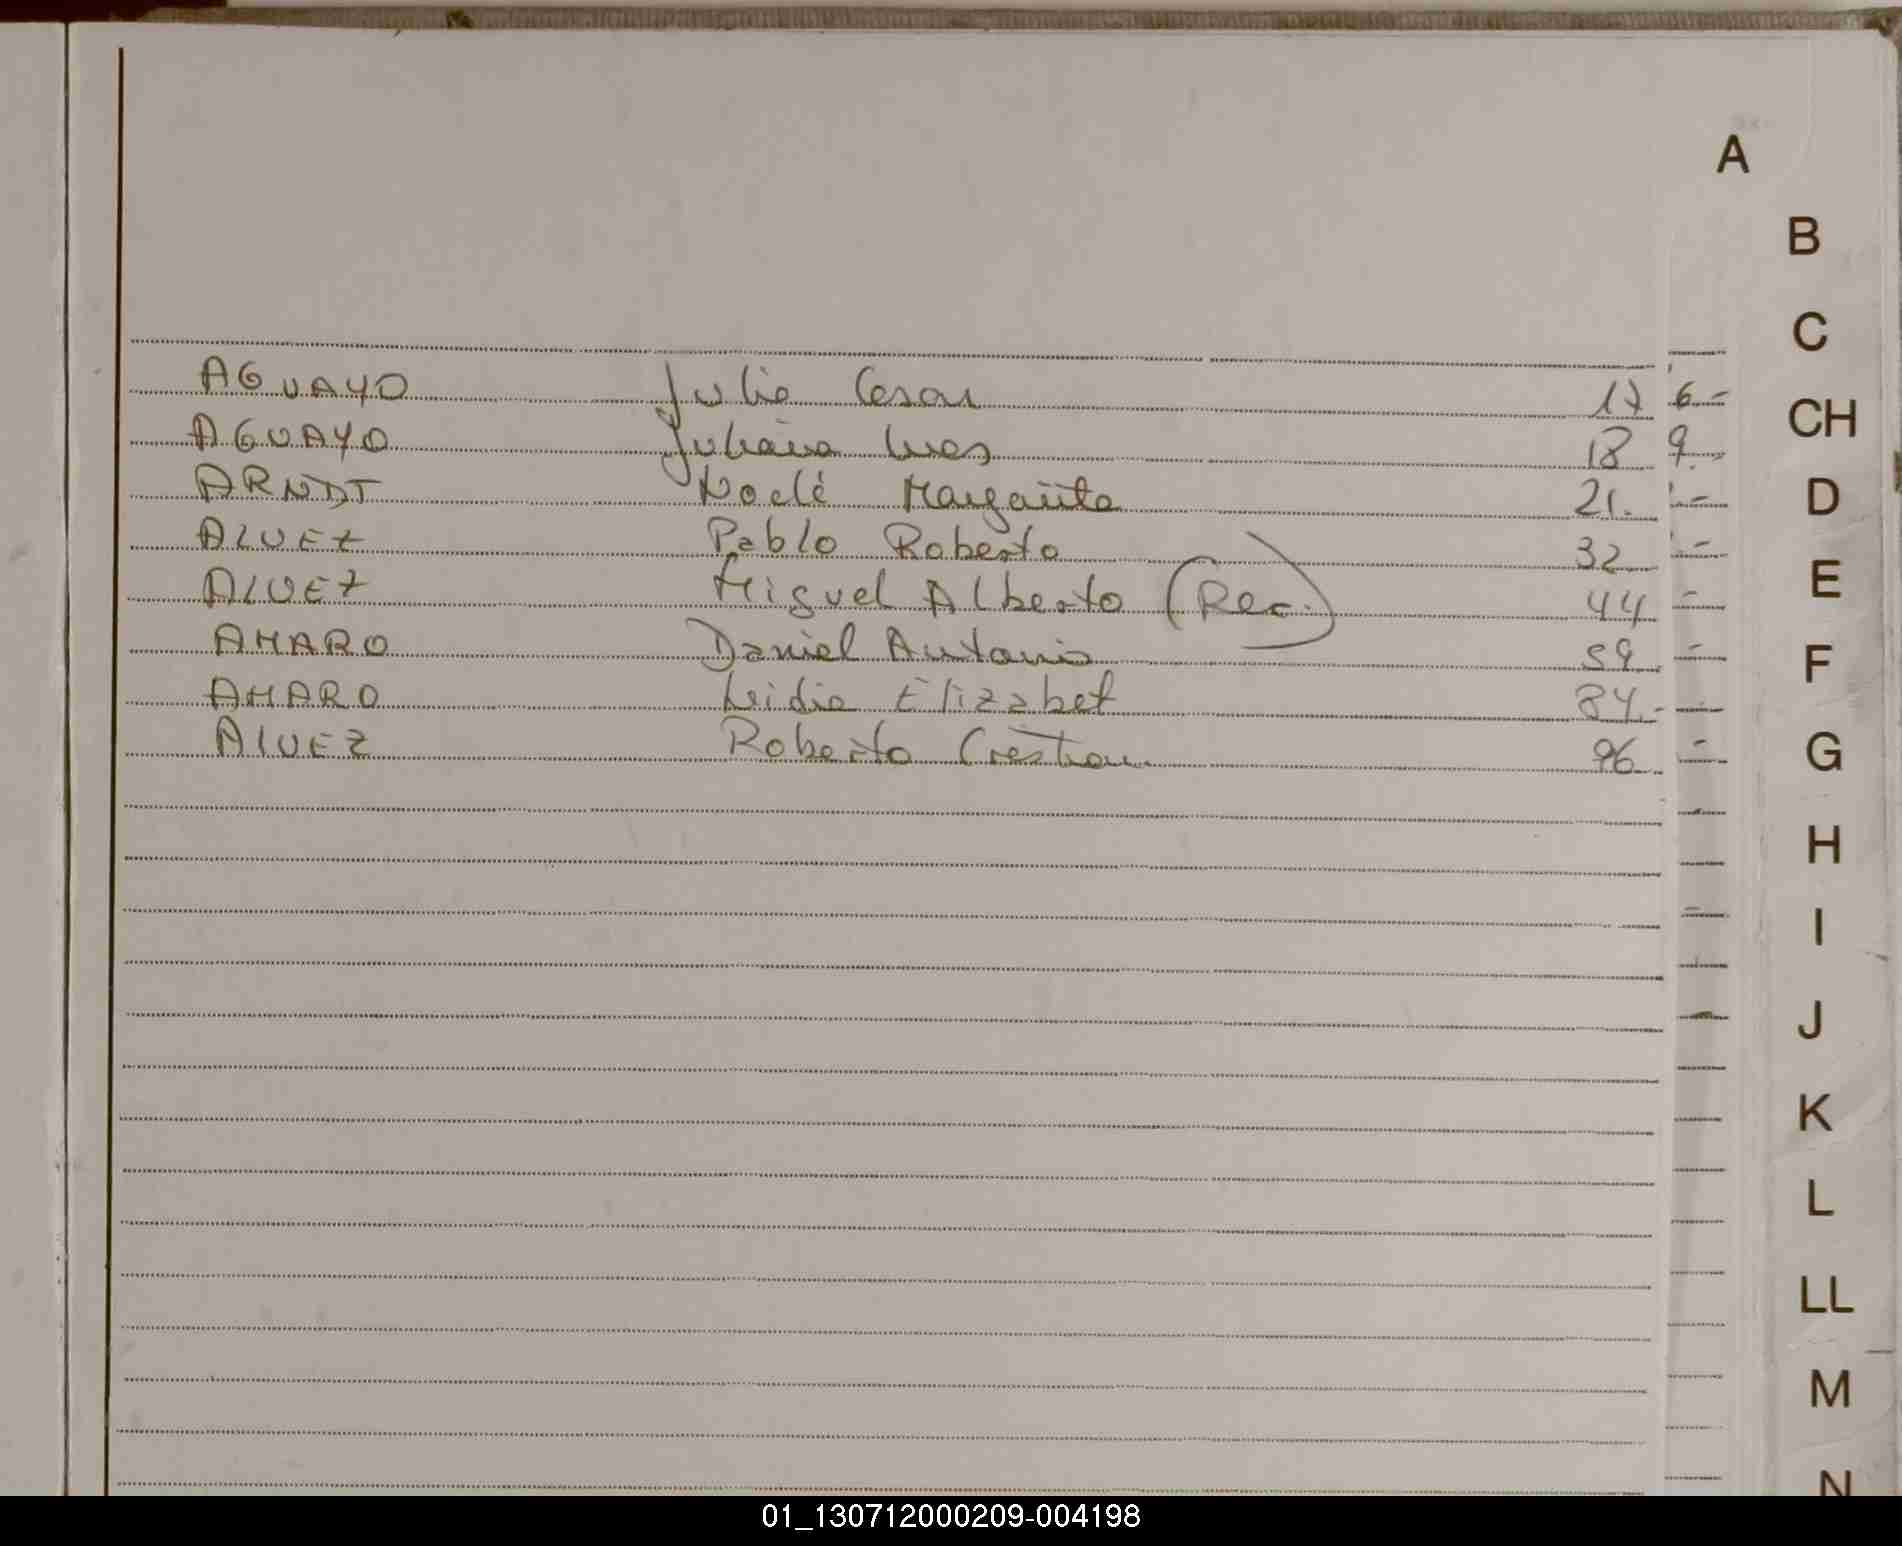 A
B
C
CH
D
E
F
G
H
I
J
K
L
LL
M
N
AGUAYO Julio Cesar 17 6
AGUAYO Juliana Ines 18 9
ARNDT Noelé Margarita 21.
ALVEZ Pablo Roberto 32
ALVEZ Miguel Alberto (Rec.) 44
AMARO Daniel Antonio 59
AMARO Lidia Elizabet 84
ALVEZ Roberto Cristian 96
01_130712000209-004198